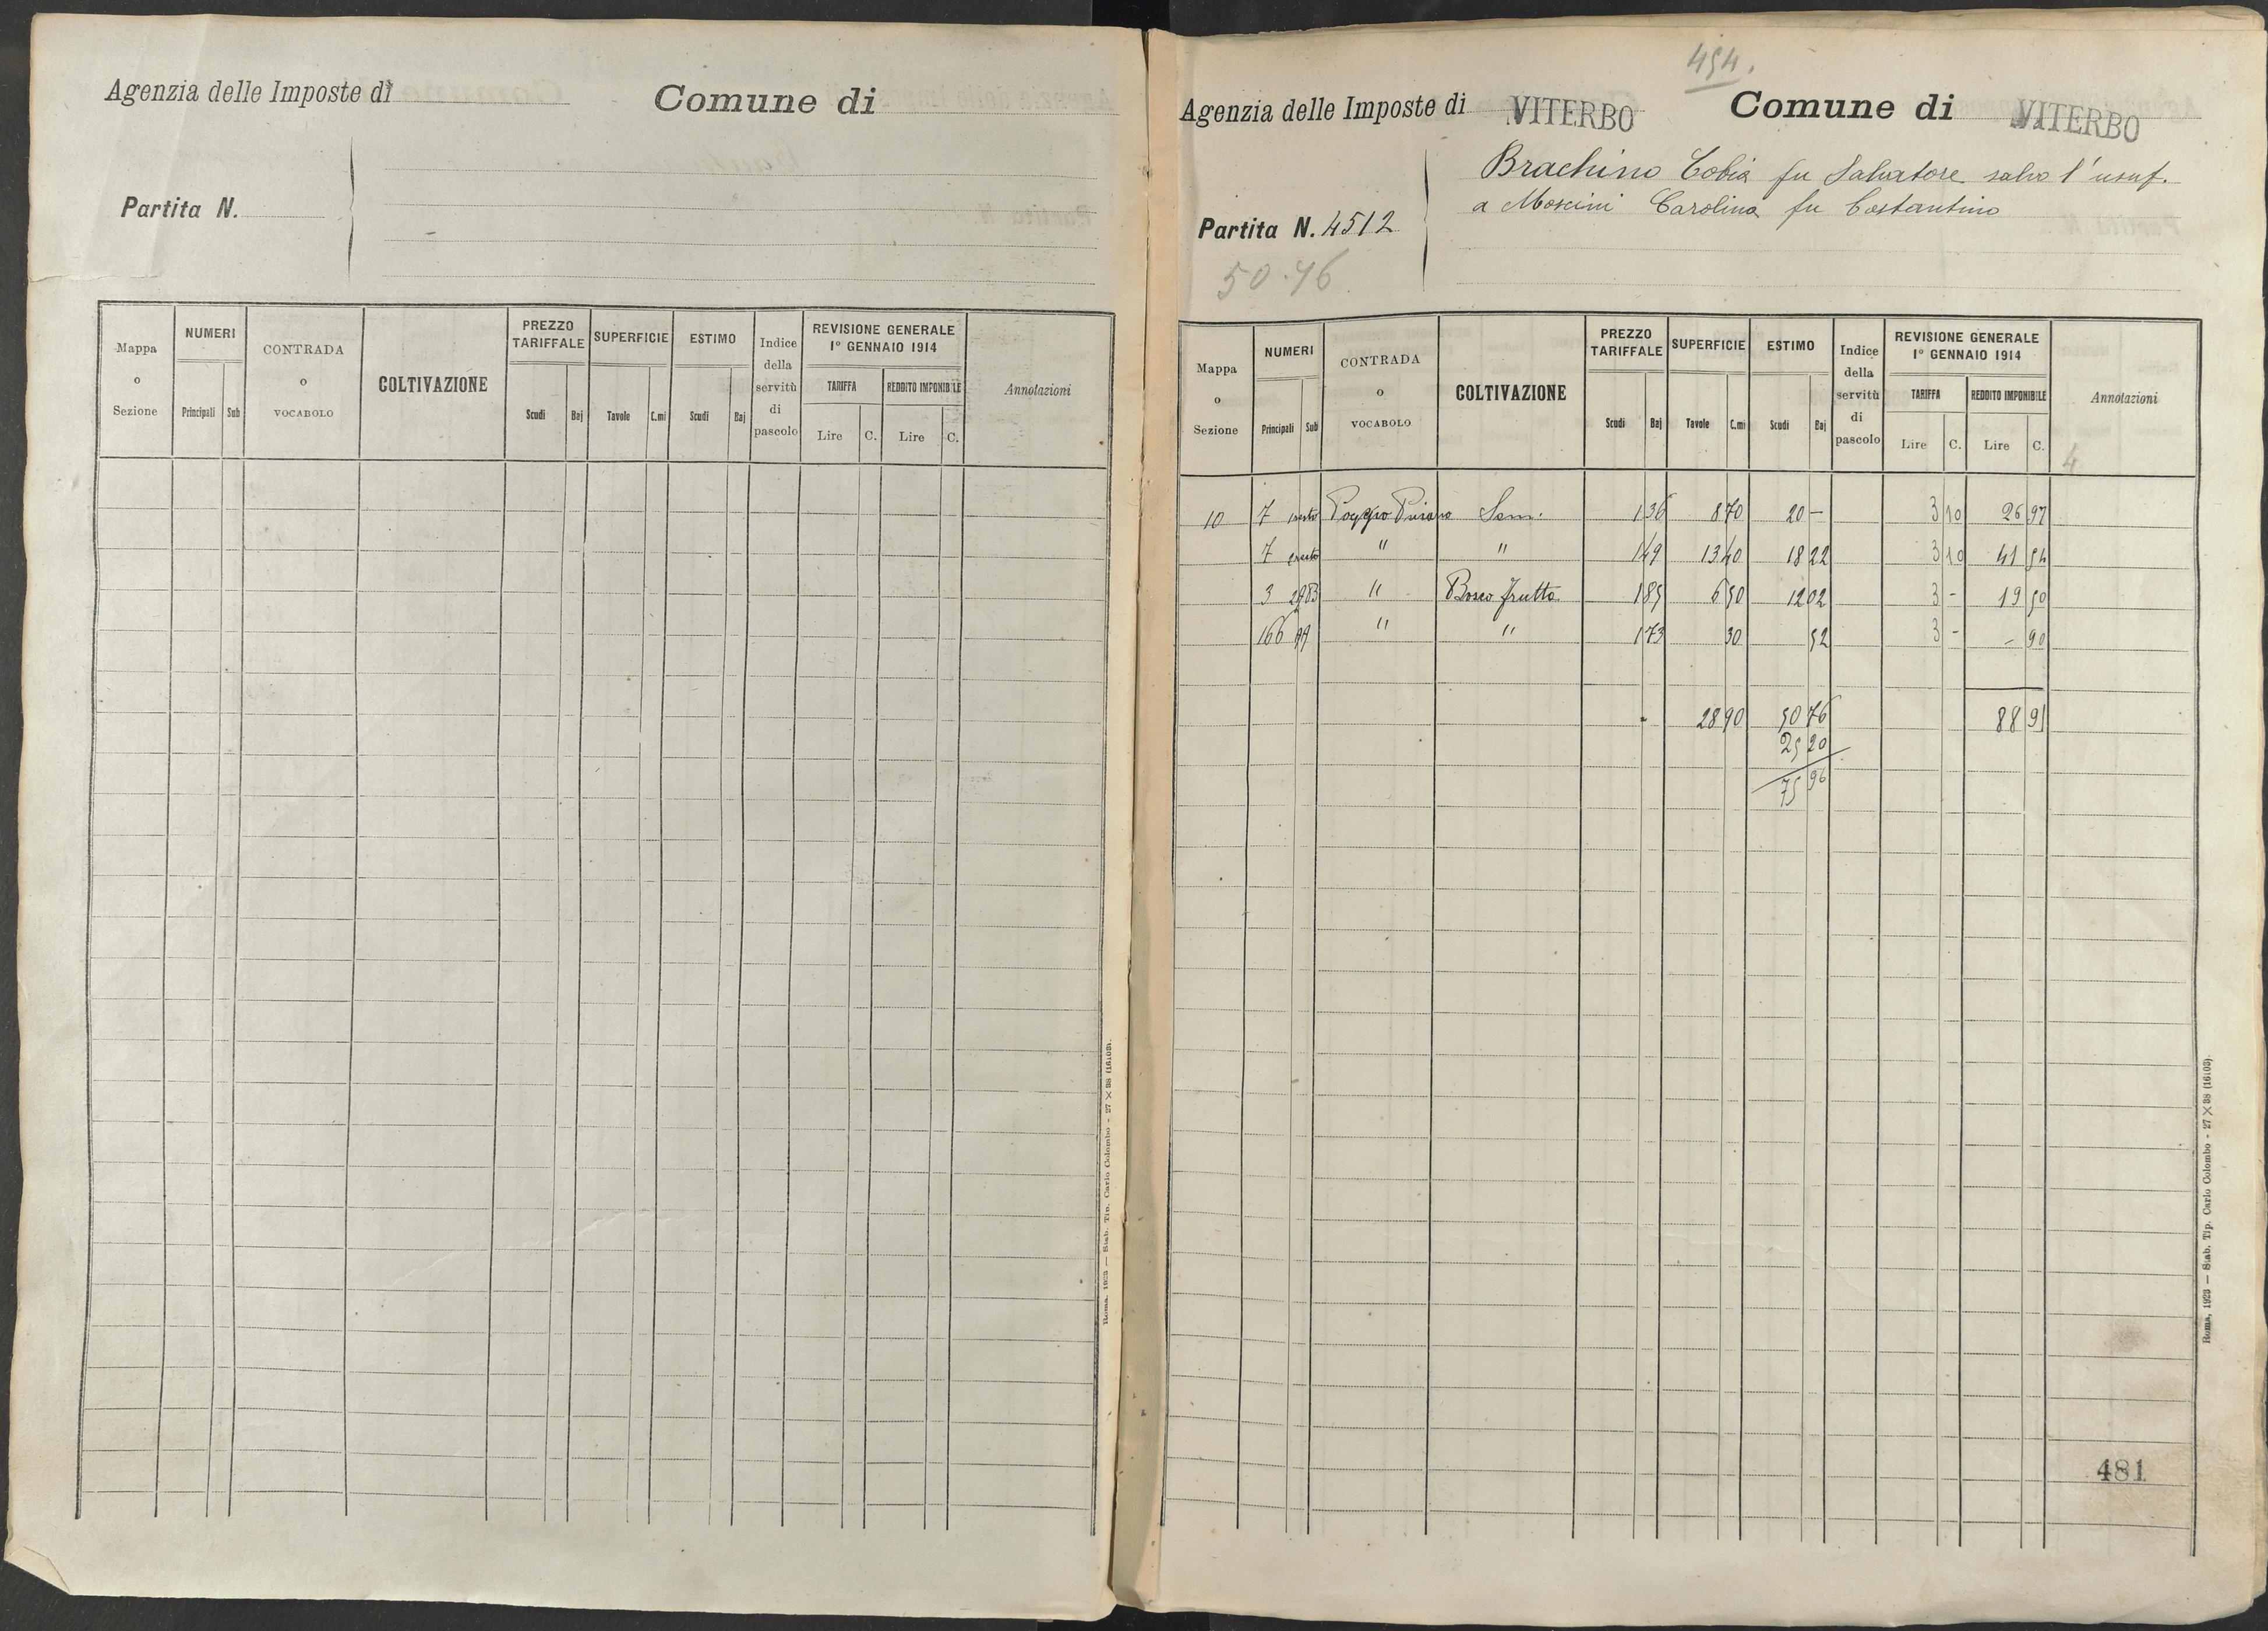 Agenzia delle Imposte di Comune di
Partita N.
Mappa o Sezione
NUMERI
Principali Sub
CONTRADA o VOCABOLO
COLTIVAZIONE
PREZZO TARIFFALE
Scudi Baj
SUPERFICIE
Tavole C.mi
ESTIMO
Scudi Baj
Indice della servitù di pascolo
REVISIONE GENERALE
1° GENNAIO 1914
TARIFFA REDDITO IMPONIBILE
Lire C. Lire C.
Annotazioni
Roma, 1923 — Stab. Tip. Carlo Colombo - 27 × 38 (16103).
454.
Agenzia delle Imposte di VITERBO Comune di VITERBO
Brachino Tobia fu Salvatore salvo l'usuf.
a Moscini Carolina fu Costantino
Partita N. 4512
50.76
Mappa o Sezione
NUMERI
Principali Sub
CONTRADA o VOCABOLO
COLTIVAZIONE
PREZZO TARIFFALE
Scudi Baj
SUPERFICIE
Tavole C.mi
ESTIMO
Scudi Baj
Indice della servitù di pascolo
REVISIONE GENERALE
1° GENNAIO 1914
TARIFFA REDDITO IMPONIBILE
Lire C. Lire C.
Annotazioni
4
10 7 Poggio Sem. 1 36 8 70 20 — 3 10 26 97
7 " " 1 49 13 40 18 22 3 10 41 54
3 " Bosco frutto 1 85 6 50 12 02 3 - 19 50
166 " " 1 73 30 52 3 - - 90
28 90 50 76 88 91
25 20
75 96
481
Roma, 1923 — Stab. Tip. Carlo Colombo - 27 × 38 (16103)